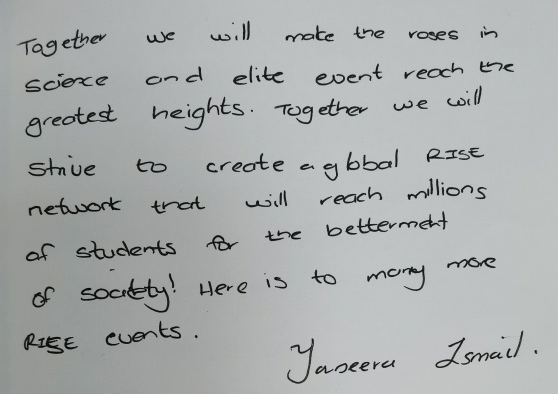 Together we will make the roses in
science and elite event reach the
greatest heights. Together we will
strive to create a global RISE
network that will reach millions
of students for the betterment
of society! Here is to many more
RISE events.
Yaseera Ismail.